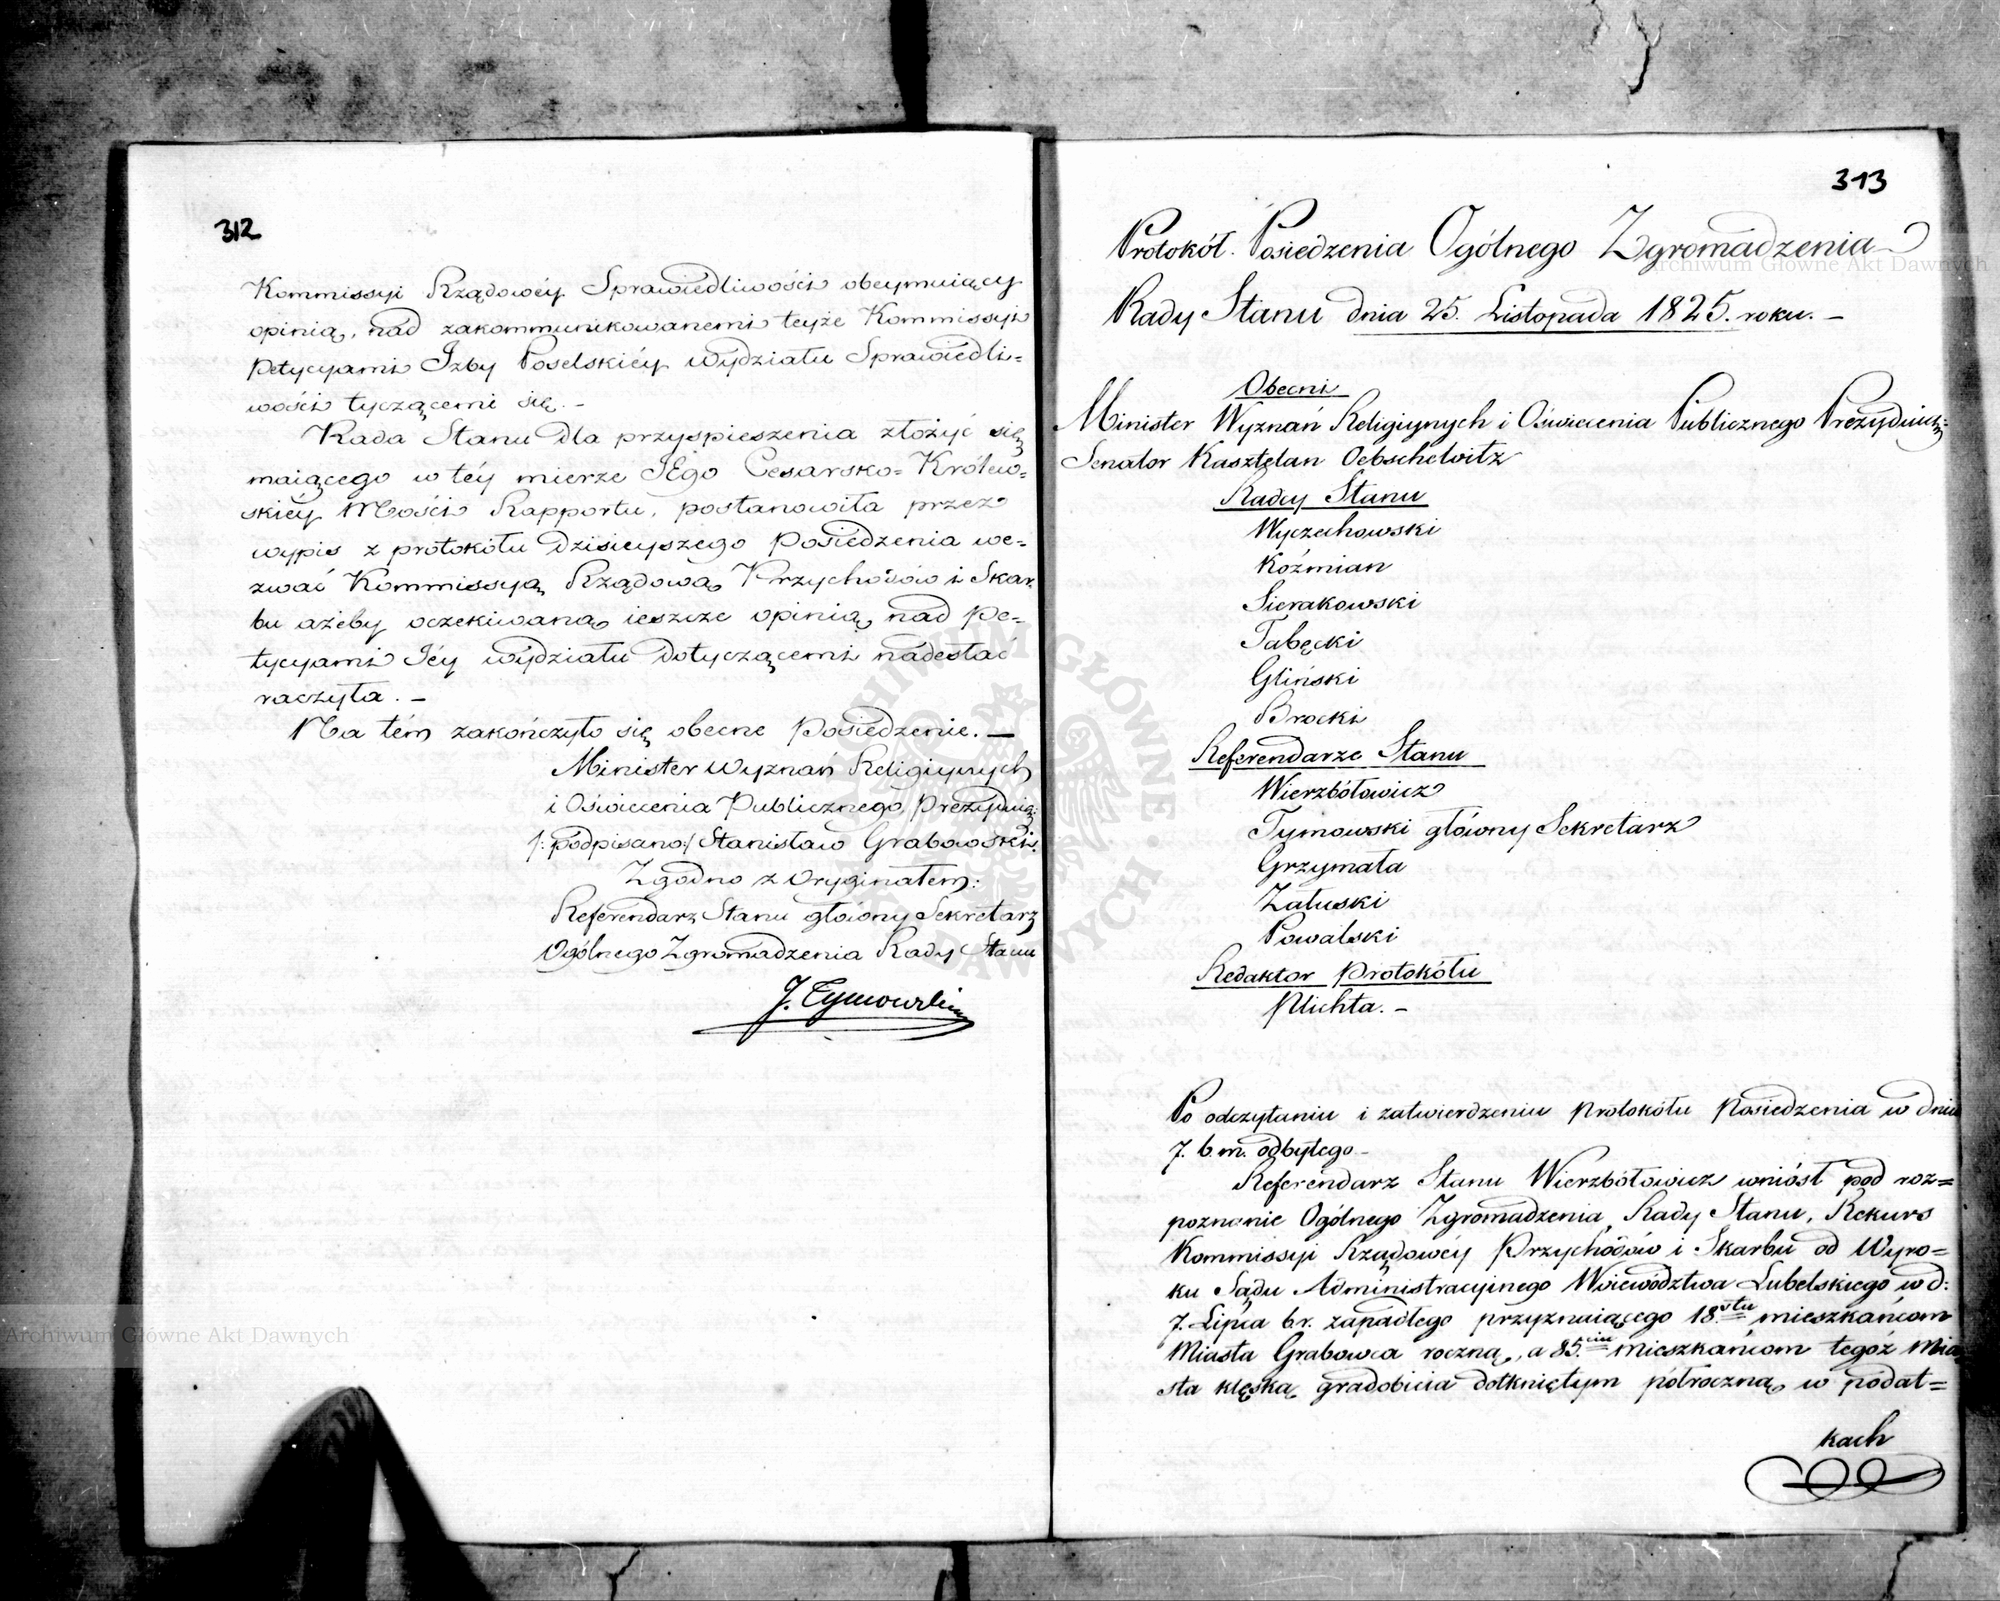 312
Kommissyi Rządowéy Sprawiedliwości obeymuiący
opinią, nad zakommunikowanemi teyże Kommissyi
Petycyami Izby Poselskiéy wydziału Sprawiedli=
wości tyczącemi się. –
Rada Stanu dla przyspieszenia złożyć się
maiącego w téy mierze JEgo Cesarsko=Królew=
skiéy Mości Rapportu, postanowiła przez
wypis z protokółu dzisieyszego Posiedzenia we=
zwać Kommissyą Rządową Przychodów i Skar=
bu ażeby oczekiwaną ieszcze opinią nad Pe=
tycyami Jéy wydziału dotyczącemi nadesłać
raczyła. –
Na tém zakończyło się obecne Posiedzenie. –
Minister Wyznań Religiynych
i Oświecenia Publicznego, Prezyduią:
/: podpisano:/ Stanisław Grabowski.
Zgodno z Oryginałem:
Referendarz Stanu główny Sekretarz
Ogólnego Zgromadzenia Rady Stanu
J. Tymowski
313
Protokół. Posiedzenia Ogólnego Zgromadzenia
Rady Stanu dnia 25. Listopada 1825. roku. –
Obecni
Minister Wyznań Religiynych i Oświecenia Publicznego Prezyduiący
Senator Kasztelan Oebschelwitz
Radcy Stanu
Wyczechowski
Koźmian
Sierakowski
Tabęcki
Gliński
Brocki
Referendarze Stanu
Wierzbółowicz
Tymowski główny Sekretarz
Grzymała
Załuski
Powalski
Redaktor Protokółu
Plichta. –
Po odczytaniu i zatwierdzeniu Protokółu Posiedzenia w dniu
7. b. m. odbytego –
Referendarz Stanu Wierzbółowicz wniósł pod roz=
poznanie Ogólnego Zgromadzenia Rady Stanu, Rekurs
Kommissyi Rządowéy Przychodów i Skarbu od Wyro=
ku Sądu Administracyinego Województwa Lubelskiego w d:
7. Lipca b. r. zapadłego przyznaiącego 18.stu mieszkańcom
Miasta Grabowca roczną, a 85.ciu mieszkańcom tegoż Mia
sta klęską gradobicia dotkniętym półroczną w podat=
kach
Archiwum Główne Akt Dawnych
Archiwum Główne Akt Dawnych
ARCHIWUM GŁÓWNE AKT DAWNYCH